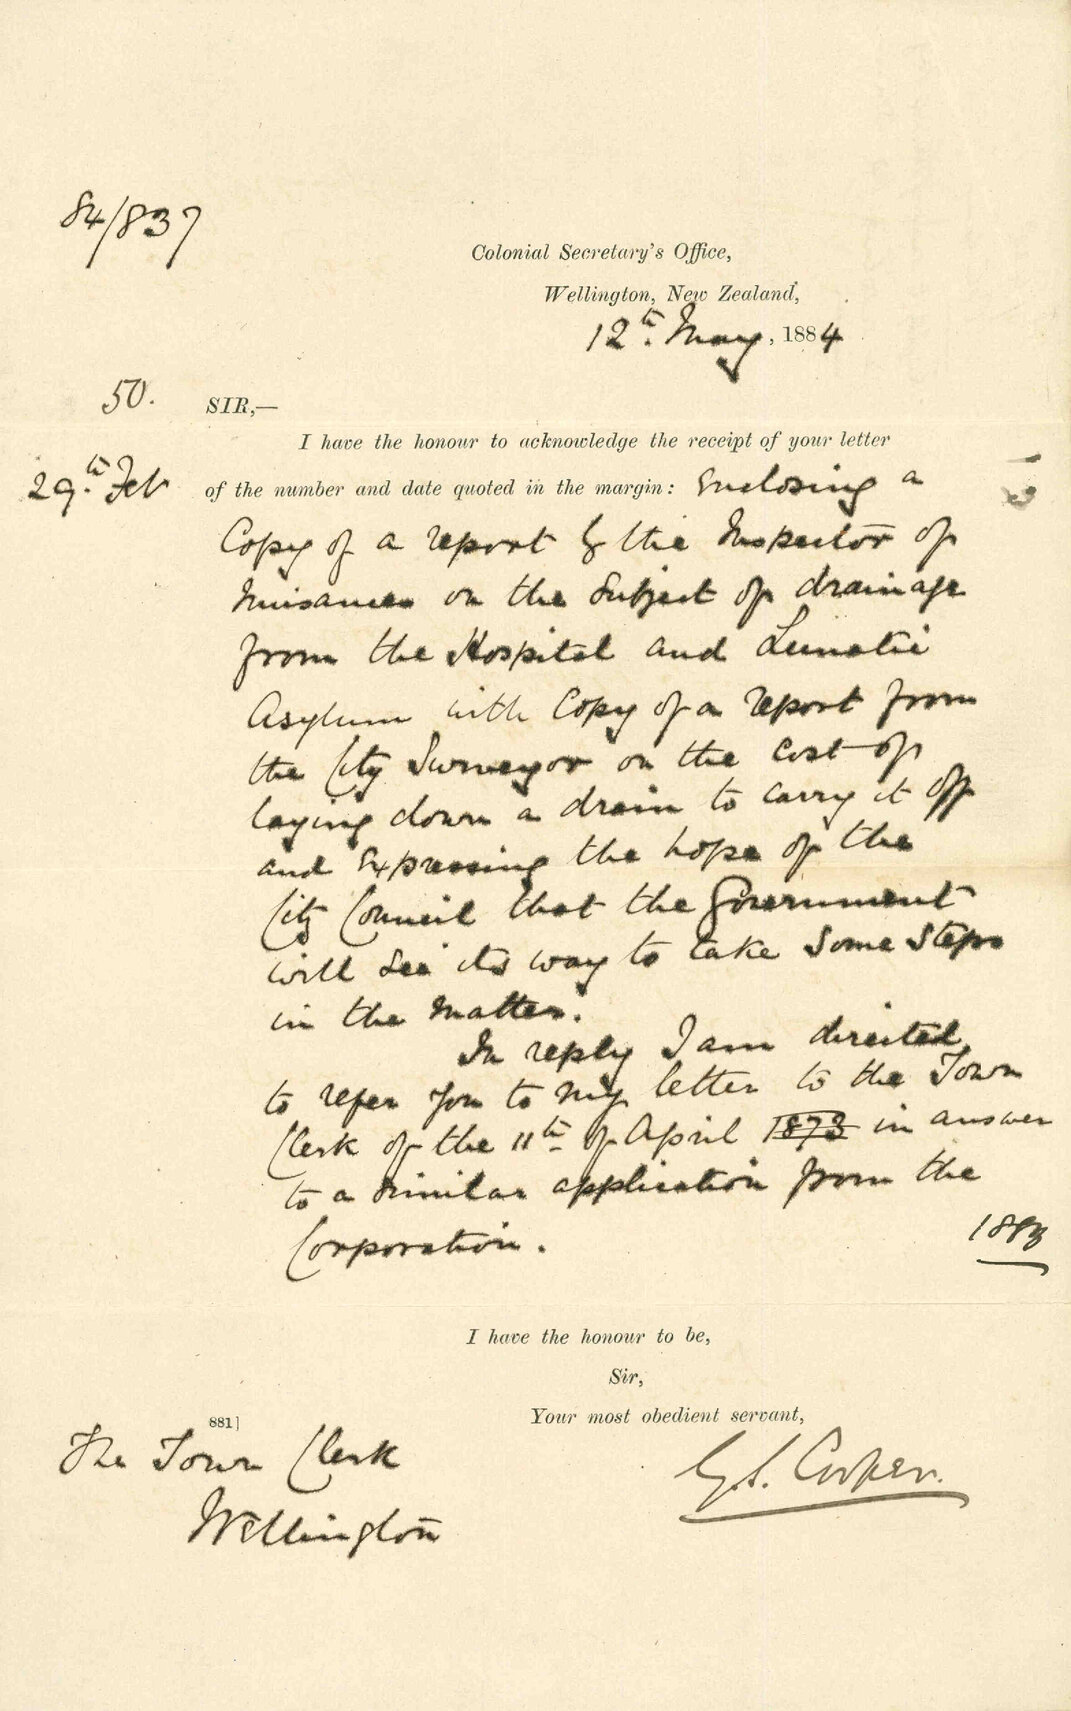 84/837
Colonial Secretary's Office,
Wellington, New Zealand,
12th. May, 1884
50.
SIR,—
I have the honour to acknowledge the receipt of your letter
29th. Feb
of the number and date quoted in the margin: Enclosing a
Copy of a report by the Inspector of
Nuisances on the Subject of drainage
from the Hospital and Lunatic
Asylum with Copy of a report from
the City Surveyor on the cost of
laying down a drain to carry it off
and expressing the hope of the
City Council that the Government
will see its way to take some steps
in the matter.
In reply I am directed
to refer you to my letter to the Town
Clerk of the 11th of April 1873 in answer
to a similar application from the
Corporation.
1883
I have the honour to be,
Sir,
Your most obedient servant,
881]
The Town Clerk
Wellington
G. S. Cooper.